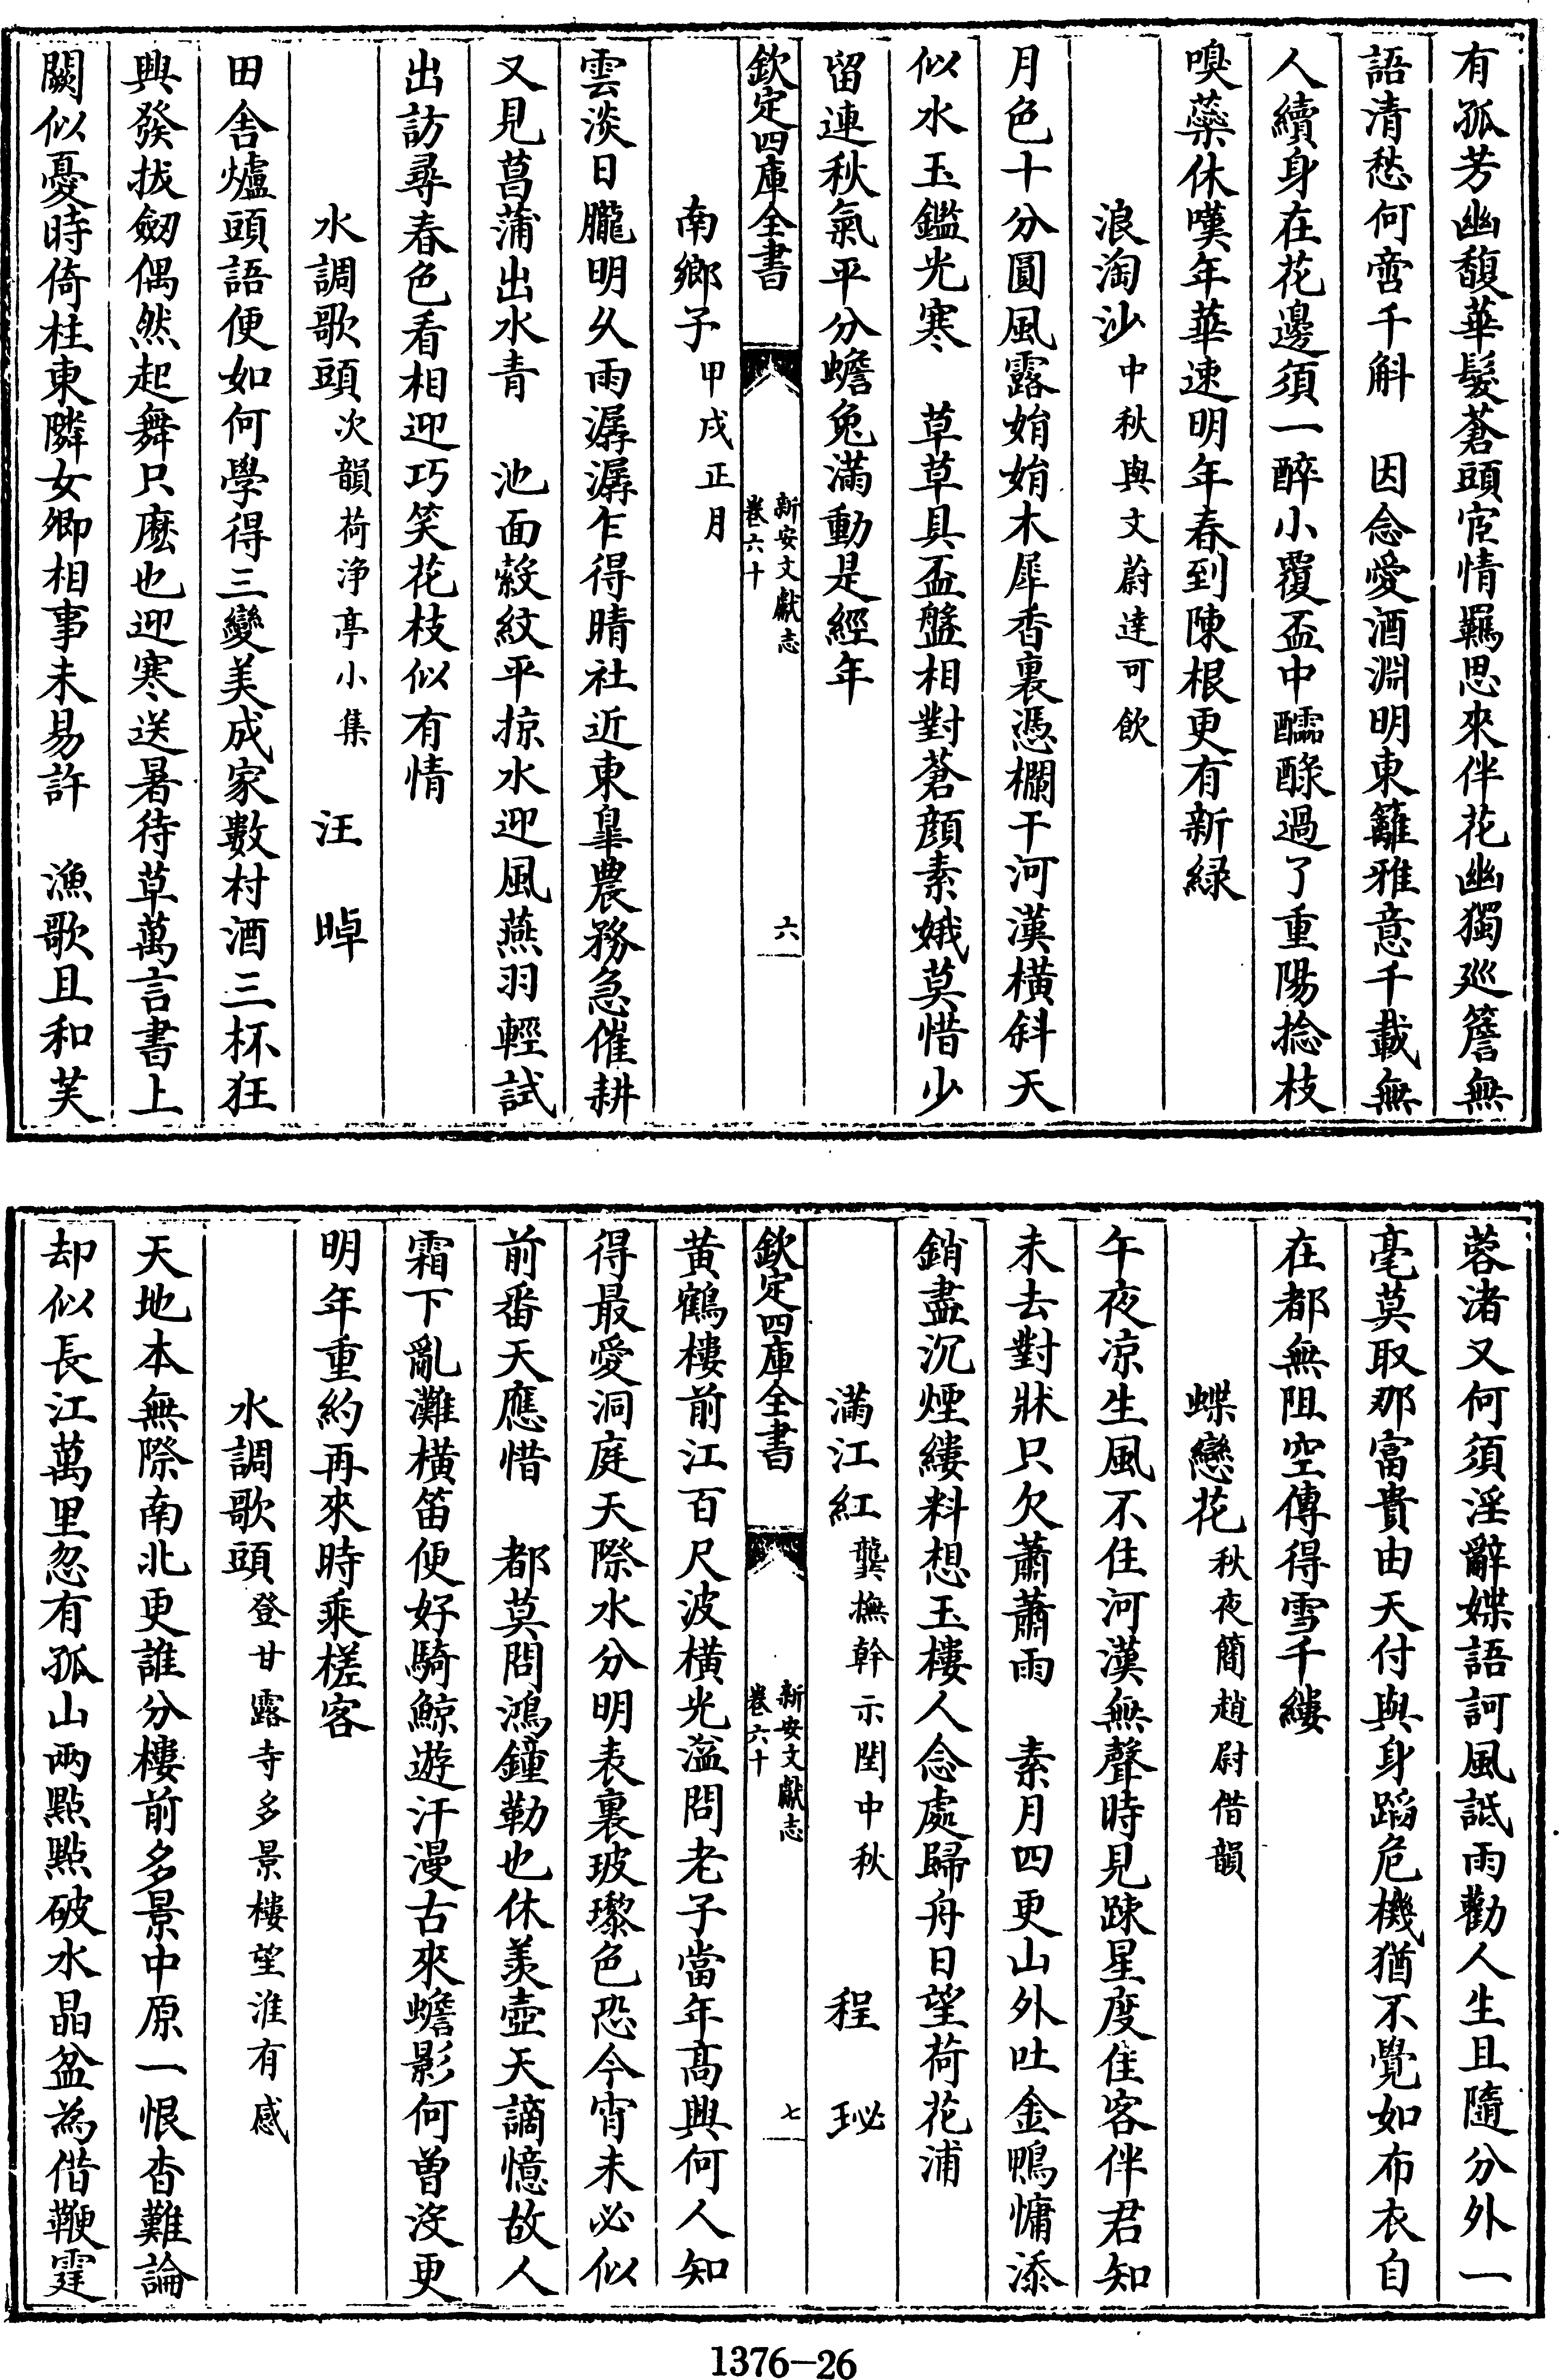 有孤芳幽馥華髮蒼頭宦情羈思來伴花幽獨廵簷無
語清愁何啻千斛　因念愛酒淵明東籬雅意千載無
人續身在花邊須一醉小覆盃中醽醁過了重陽捻枝
嗅蘂休嘆年華速明年春到陳根更有新緑
浪淘沙中秋與文蔚達可飲
月色十分圓風露娟娟木犀香裏憑欄干河漢橫斜天
似水玉鑑光寒　草草具盃盤相對蒼顔素娥莫惜少
留連秋氣平分蟾兔滿動是經年
欽定四庫全書　新安文獻志　卷六十　六
南鄉子甲戌正月
雲淡日朧明久雨潺潺乍得晴社近東臯農務急催耕
又見菖蒲出水青　池面縠紋平掠水迎風燕羽輕試
出訪尋春色看相迎巧笑花枝似有情
水調歌頭次韻荷浄亭小集　汪晫
田舍爐頭語便如何學得三變美成家數村酒三杯狂
興發拔劒偶然起舞只麽也迎寒送暑待草萬言書上
闕似憂時倚柱東隣女卿相事未易許　漁歌且和芙
蓉渚又何須淫辭媟語訶風詆雨勸人生且隨分外一
毫莫取那富貴由天付與身蹈危機猶不覺如布衣自
在都無阻空傳得雪千縷
蝶戀花秋夜簡趙尉借韻
午夜凉生風不住河漢無聲時見踈星度隹客伴君知
未去對牀只欠蕭蕭雨　素月四更山外吐金鴨慵添
銷盡沉煙縷料想玉樓人念處歸舟日望荷花浦
滿江紅龔撫幹示閏中秋　程珌
欽定四庫全書　新安文獻志　卷六十　七
黄鶴樓前江百尺波橫光溢問老子當年髙興何人知
得最愛洞庭天際水分明表裏玻瓈色恐今宵未必似
前番天應惜　都莫問鴻鐘勒也休羨壺天謫憶故人
霜下亂灘橫笛便好騎鯨遊汗漫古來蟾影何曽没更
明年重約再來時乘槎客
水調歌頭登甘露寺多景樓望淮有感
天地本無際南北更誰分樓前多景中原一恨杳難論
却似長江萬里忽有孤山两點點破水晶盆為借鞭霆
1376-26